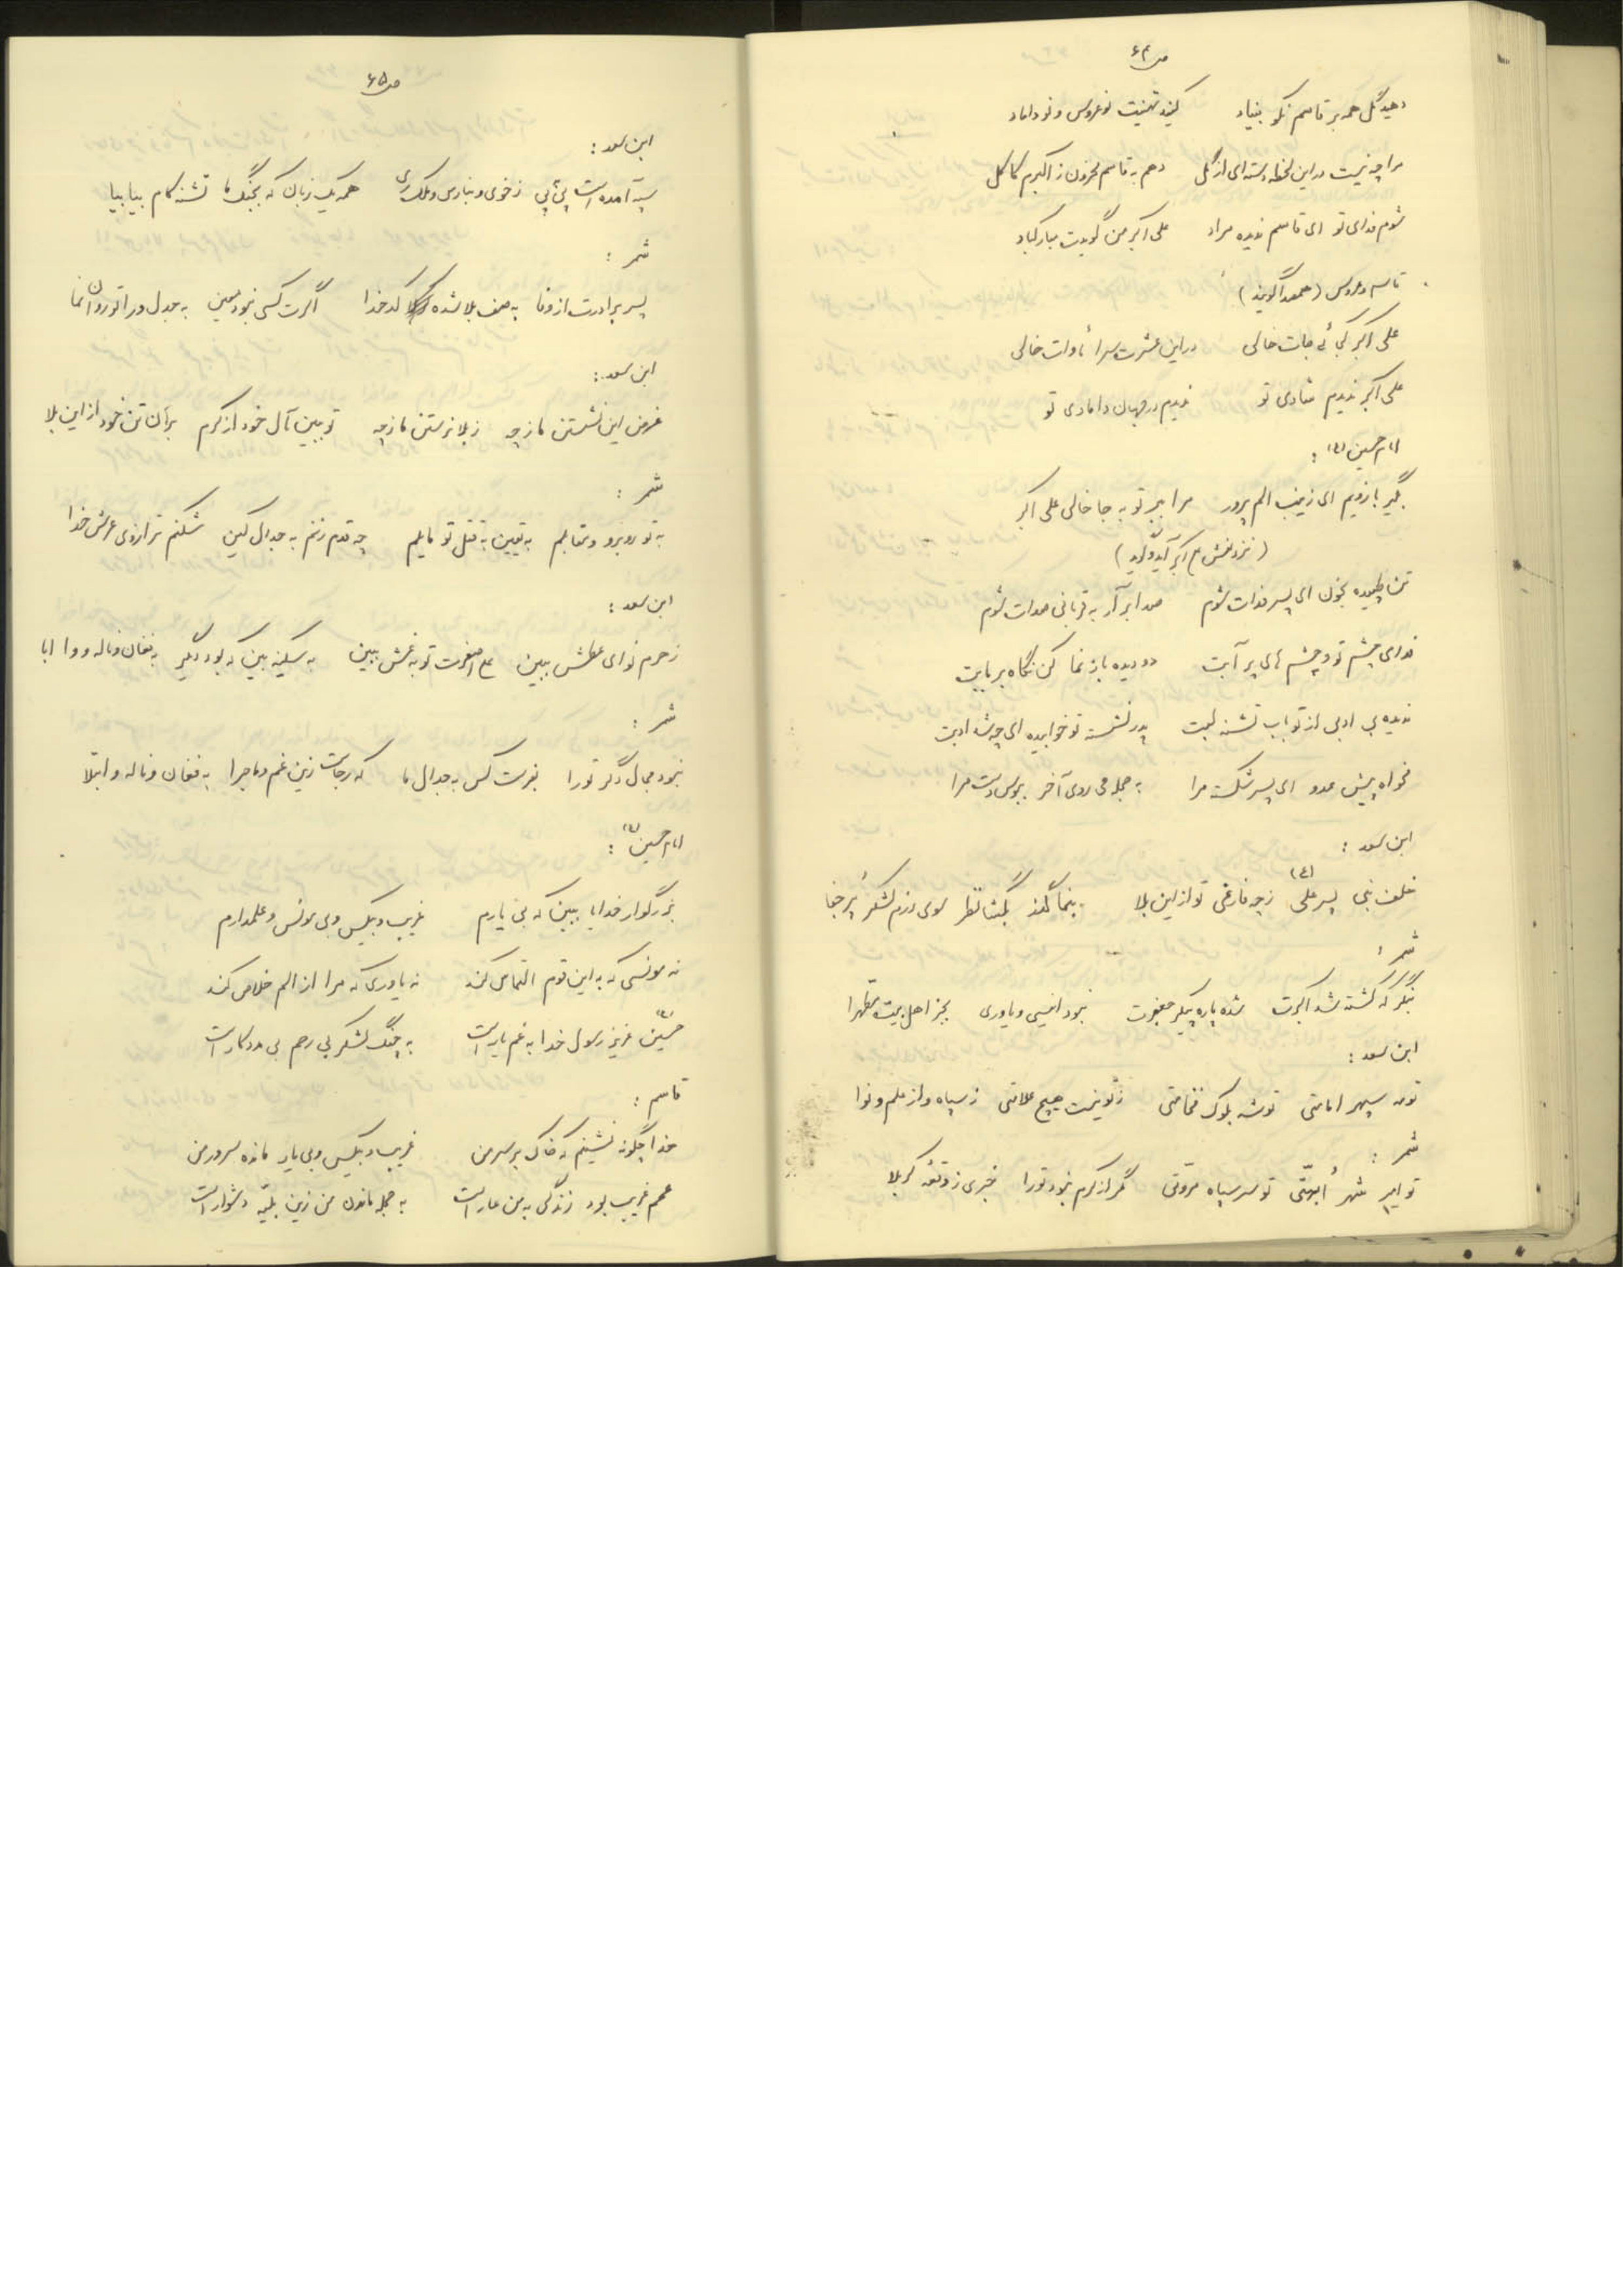 ص ۶۴
دهید گل همه بر قاسم نکو بنیاد کنید تهنیت نوعروس و نوداماد
مرا چو نیست در این لحظه دسته‌ای از گل دهم به قاسم محزون ز اکبرم کاکل
شوم فدای تو ای قاسم ندیده مراد علی اکبر من گویدت مبارکباد
قاسم و عروس (همصدا گویند)
علی اکبر کجائی جات خالی در این عشرت سرا مأوات خالی
علی اکبر ندیدم شادی تو ندیدم در جهان دامادی تو
امام حسین (ع) :
بگیر بازویم ای زینب الم پرور مرا ببر تو به جا خالی علی اکبر
(نزد نعش ع اکبر آید و گوید)
تن طپیده بخون ای پسر فدات شوم صدا برآر به قربانی صدات شوم
فدای چشم تو و چشم های پر آبت دو دیده باز نما کن نگاه بر بابت
ندیده بی ادبی از تو باب تشنه لبت پدر نشسته تو خوابیده ای چه شد ادبت
مخواه پیش عدو ای پسر شکست مرا به حجله می روی آخر ببوس دست مرا
ابن سعد :
خلف نبی پسر علی (ع) ز چه فارغی تو از این بلا بنما گذر بگشا نظر سوی رزم لشکر پر جفا
شمر :
بنگر که کشته شد اکبرت شده پاره پیکر جعفرت نبود انیسی و یاوری بجز اهل بیت مطهرا
ابن سعد :
تو مه سپهر امامتی تو شه بلوک فخامتی ز تو نیست هیچ علامتی ز سپاه و از علم و نوا
شمر :
تو امیر شهر اُبهتّی تو سر سپاه مروتی مگر از کرم نبود تو را خبری ز وقعهٔ کربلا
ص ۶۵
ابن سعد :
سپه آمده است پی به پی ز خوی و بنادی و ملک ری همه یک زبان که بجنگ ما تشنه کام بیا بیا
شمر :
پسر برادرت از وفا به صف بلا شده کدخدا اگرت کسی نبود معین به جدل ورا تو روان نما
ابن سعد :
غرض این نشستن ما ز چه ز بلا نرستن ما ز چه تو ببین آل خود از کرم برآن تن خود از این بلا
شمر :
به تو روبرو و مقابلم به یقین به قتل تو مایلم چو قدم زنم به جدال کین شکنم ترازوی عرش خدا
ابن سعد :
ز حرم نوای عطش ببین ع اصغرت تو به غش ببین به سکینه بین که بود دگر به فغان و ناله و وا ابا
شمر :
نبود مجال دگر تو را بفرست کس به جدال ما که رجاست زین غم و ماجرا به فغان و ناله و ابتلا
امام حسین (ع) :
بزرگوار خدایا ببین که بی یارم غریب و بیکس و بی مونس و علمدارم
نه مونسی که به این قوم التماس کند نه یاوری که مرا از الم خلاص کند
حسین (ع) عزیز رسول خدا به غم یار است به جنگ لشکر بی رحم بی مددکار است
قاسم :
خدا چگونه نشینم که خاک بر سر من غریب و بیکس و بی یار مانده سرور من
عمم غریب بود زندگی به من عار است به حجله ماندن من زین بلیّه دشوار است